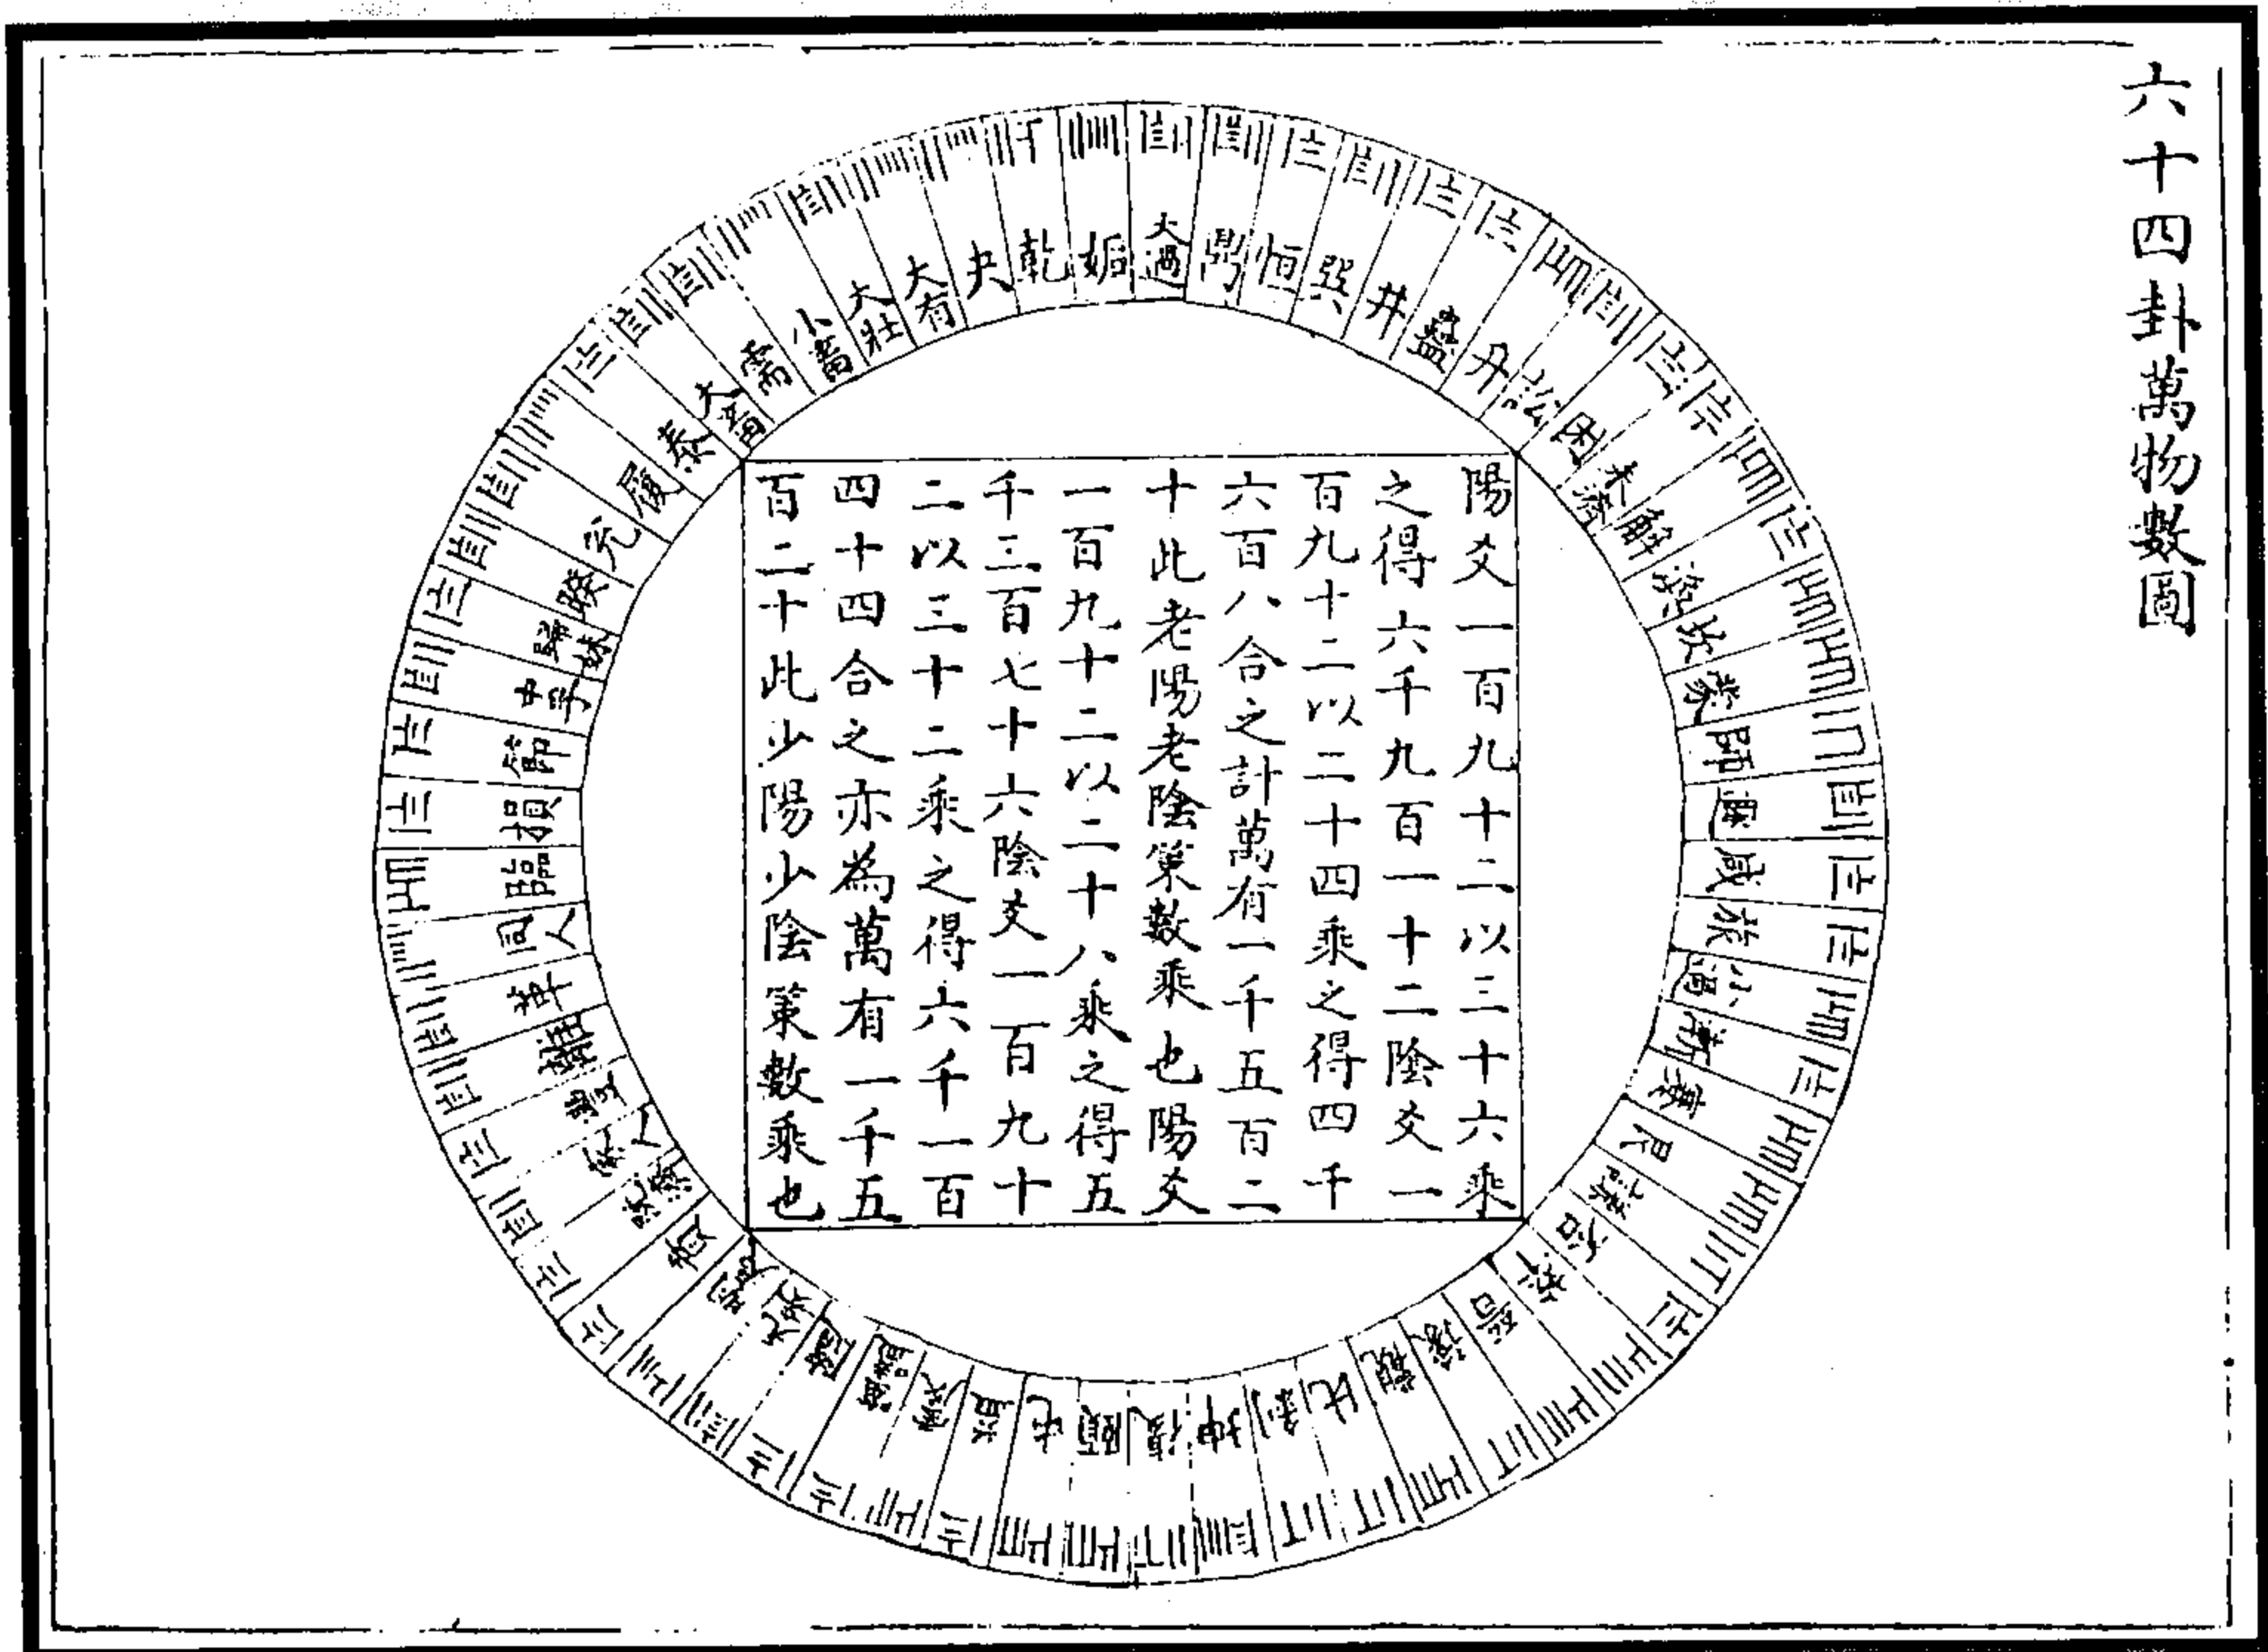 六十四卦萬物數圖
陽爻一百九十二以三十六乘
之得六千九百一十二陰爻一
百九十二以二十四乘之得四千
六百八合之計萬有一千五百二
十此老陽老陰策數乘也陽爻
一百九十二以二十八乘之得五
千三百七十六陰爻一百九十
二以三十二乘之得六千一百
四十四合之亦為萬有一千五
百二十此少陽少陰策數乘也
姤
大過
鼎
恒
巽
井
蠱
升
訟
困
未濟
解
渙
坎
蒙
師
遯
咸
旅
小過
漸
蹇
艮
謙
否
萃
晉
豫
觀
比
剝
坤
復
頤
屯
益
震
噬嗑
隨
无妄
明夷
賁
既濟
家人
豐
離
革
同人
臨
損
節
中孚
歸妹
睽
兌
履
泰
大畜
需
小畜
大壯
大有
夬
乾